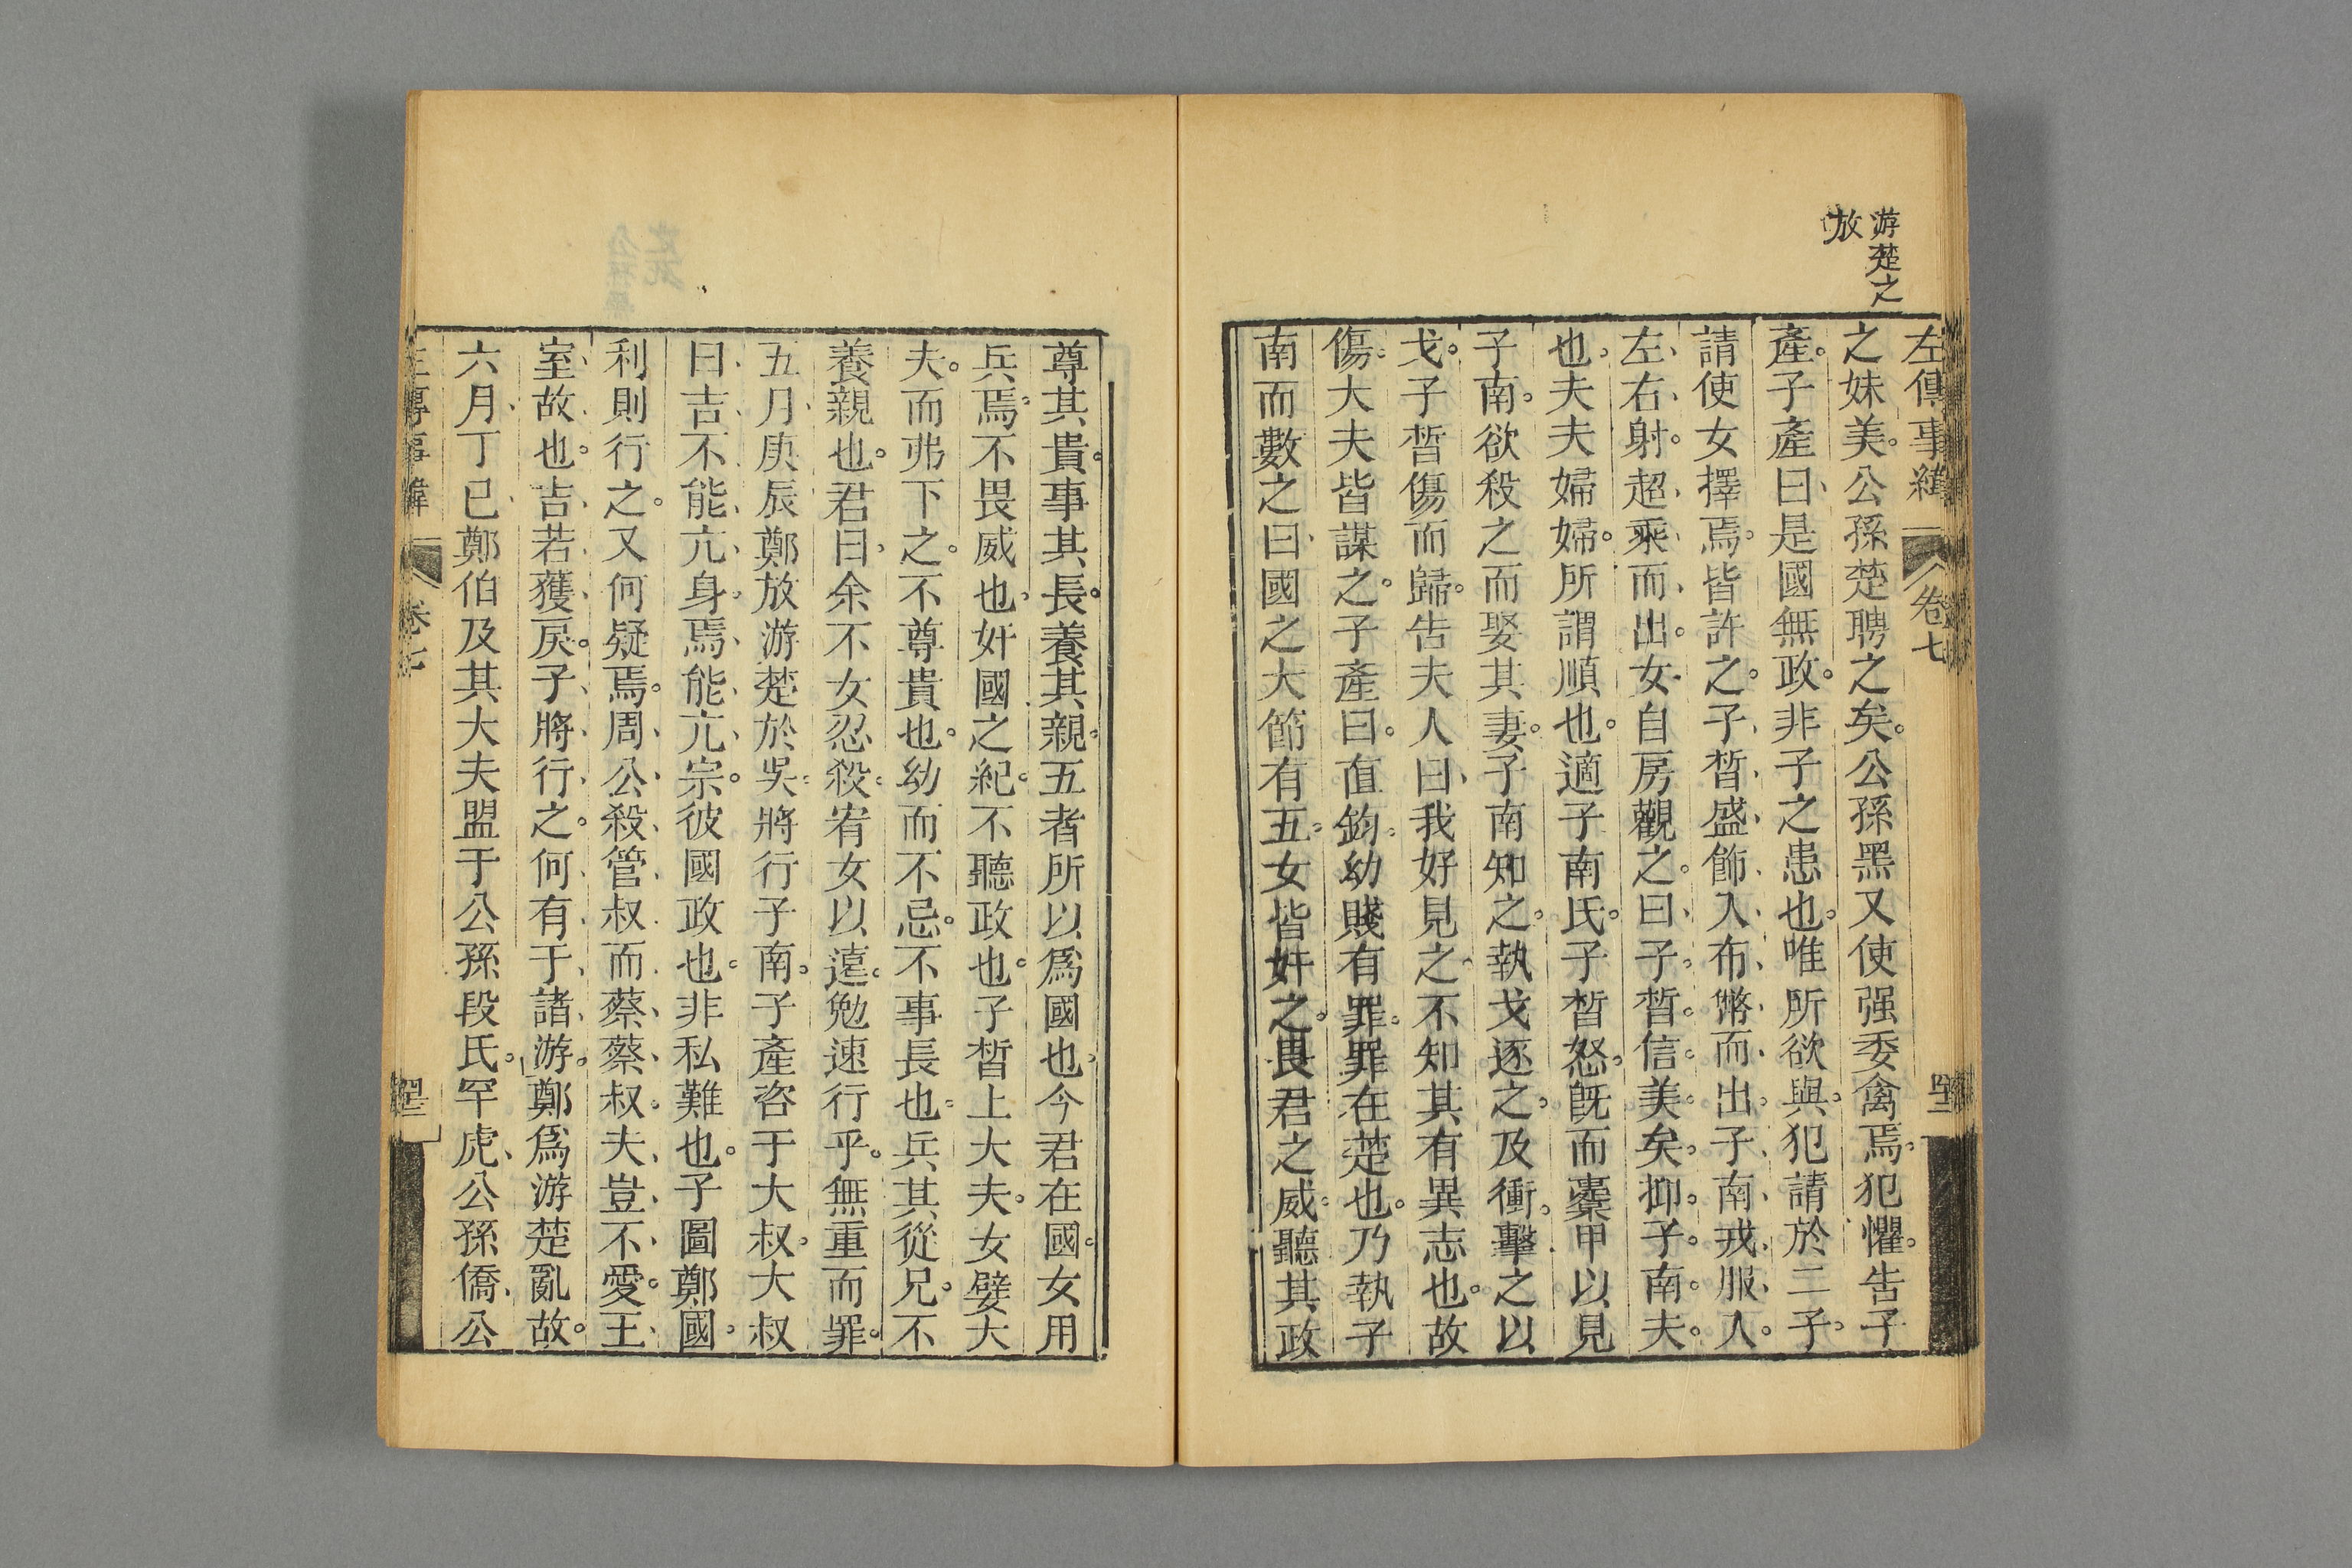 游楚之
放
左傳事緯
卷七
之妹美公孫楚聘之矣公孫黑又使强委禽焉犯懼告子
產子產曰是國無政非子之患也唯所欲與犯請於二子
請使女擇焉皆許之子晳盛飾入布幣而出子南戎服入
左右射超乘而出女自房觀之曰子晳信美矣抑子南夫
也夫夫婦婦所謂順也適子南氏子晳怒旣而櫜甲以見
子南欲殺之而娶其妻子南知之執戈逐之及衝擊之以
戈子晳傷而歸告夫人曰我好見之不知其有異志也故
傷大夫皆謀之子產曰直鈞幼賤有罪罪在楚也乃執子
南而數之曰國之大節有五女皆奸之畏君之威聽其政
尊其貴事其長養其親五者所以爲國也今君在國女用
兵焉不畏威也奸國之紀不聽政也子晳上大夫女嬖大
夫而弗下之不尊貴也幼而不忌不事長也兵其從兄不
養親也君曰余不女忍殺宥女以遠勉速行乎無重而罪
五月庚辰鄭放游楚於吳將行子南子產咨于大叔大叔
曰吉不能亢身焉能亢宗彼國政也非私難也子圖鄭國
利則行之又何疑焉周公殺管叔而蔡蔡叔夫豈不愛王
室故也吉若獲戾子將行之何有于諸游鄭爲游楚亂故
六月丁巳鄭伯及其大夫盟于公孫段氏罕虎公孫僑公